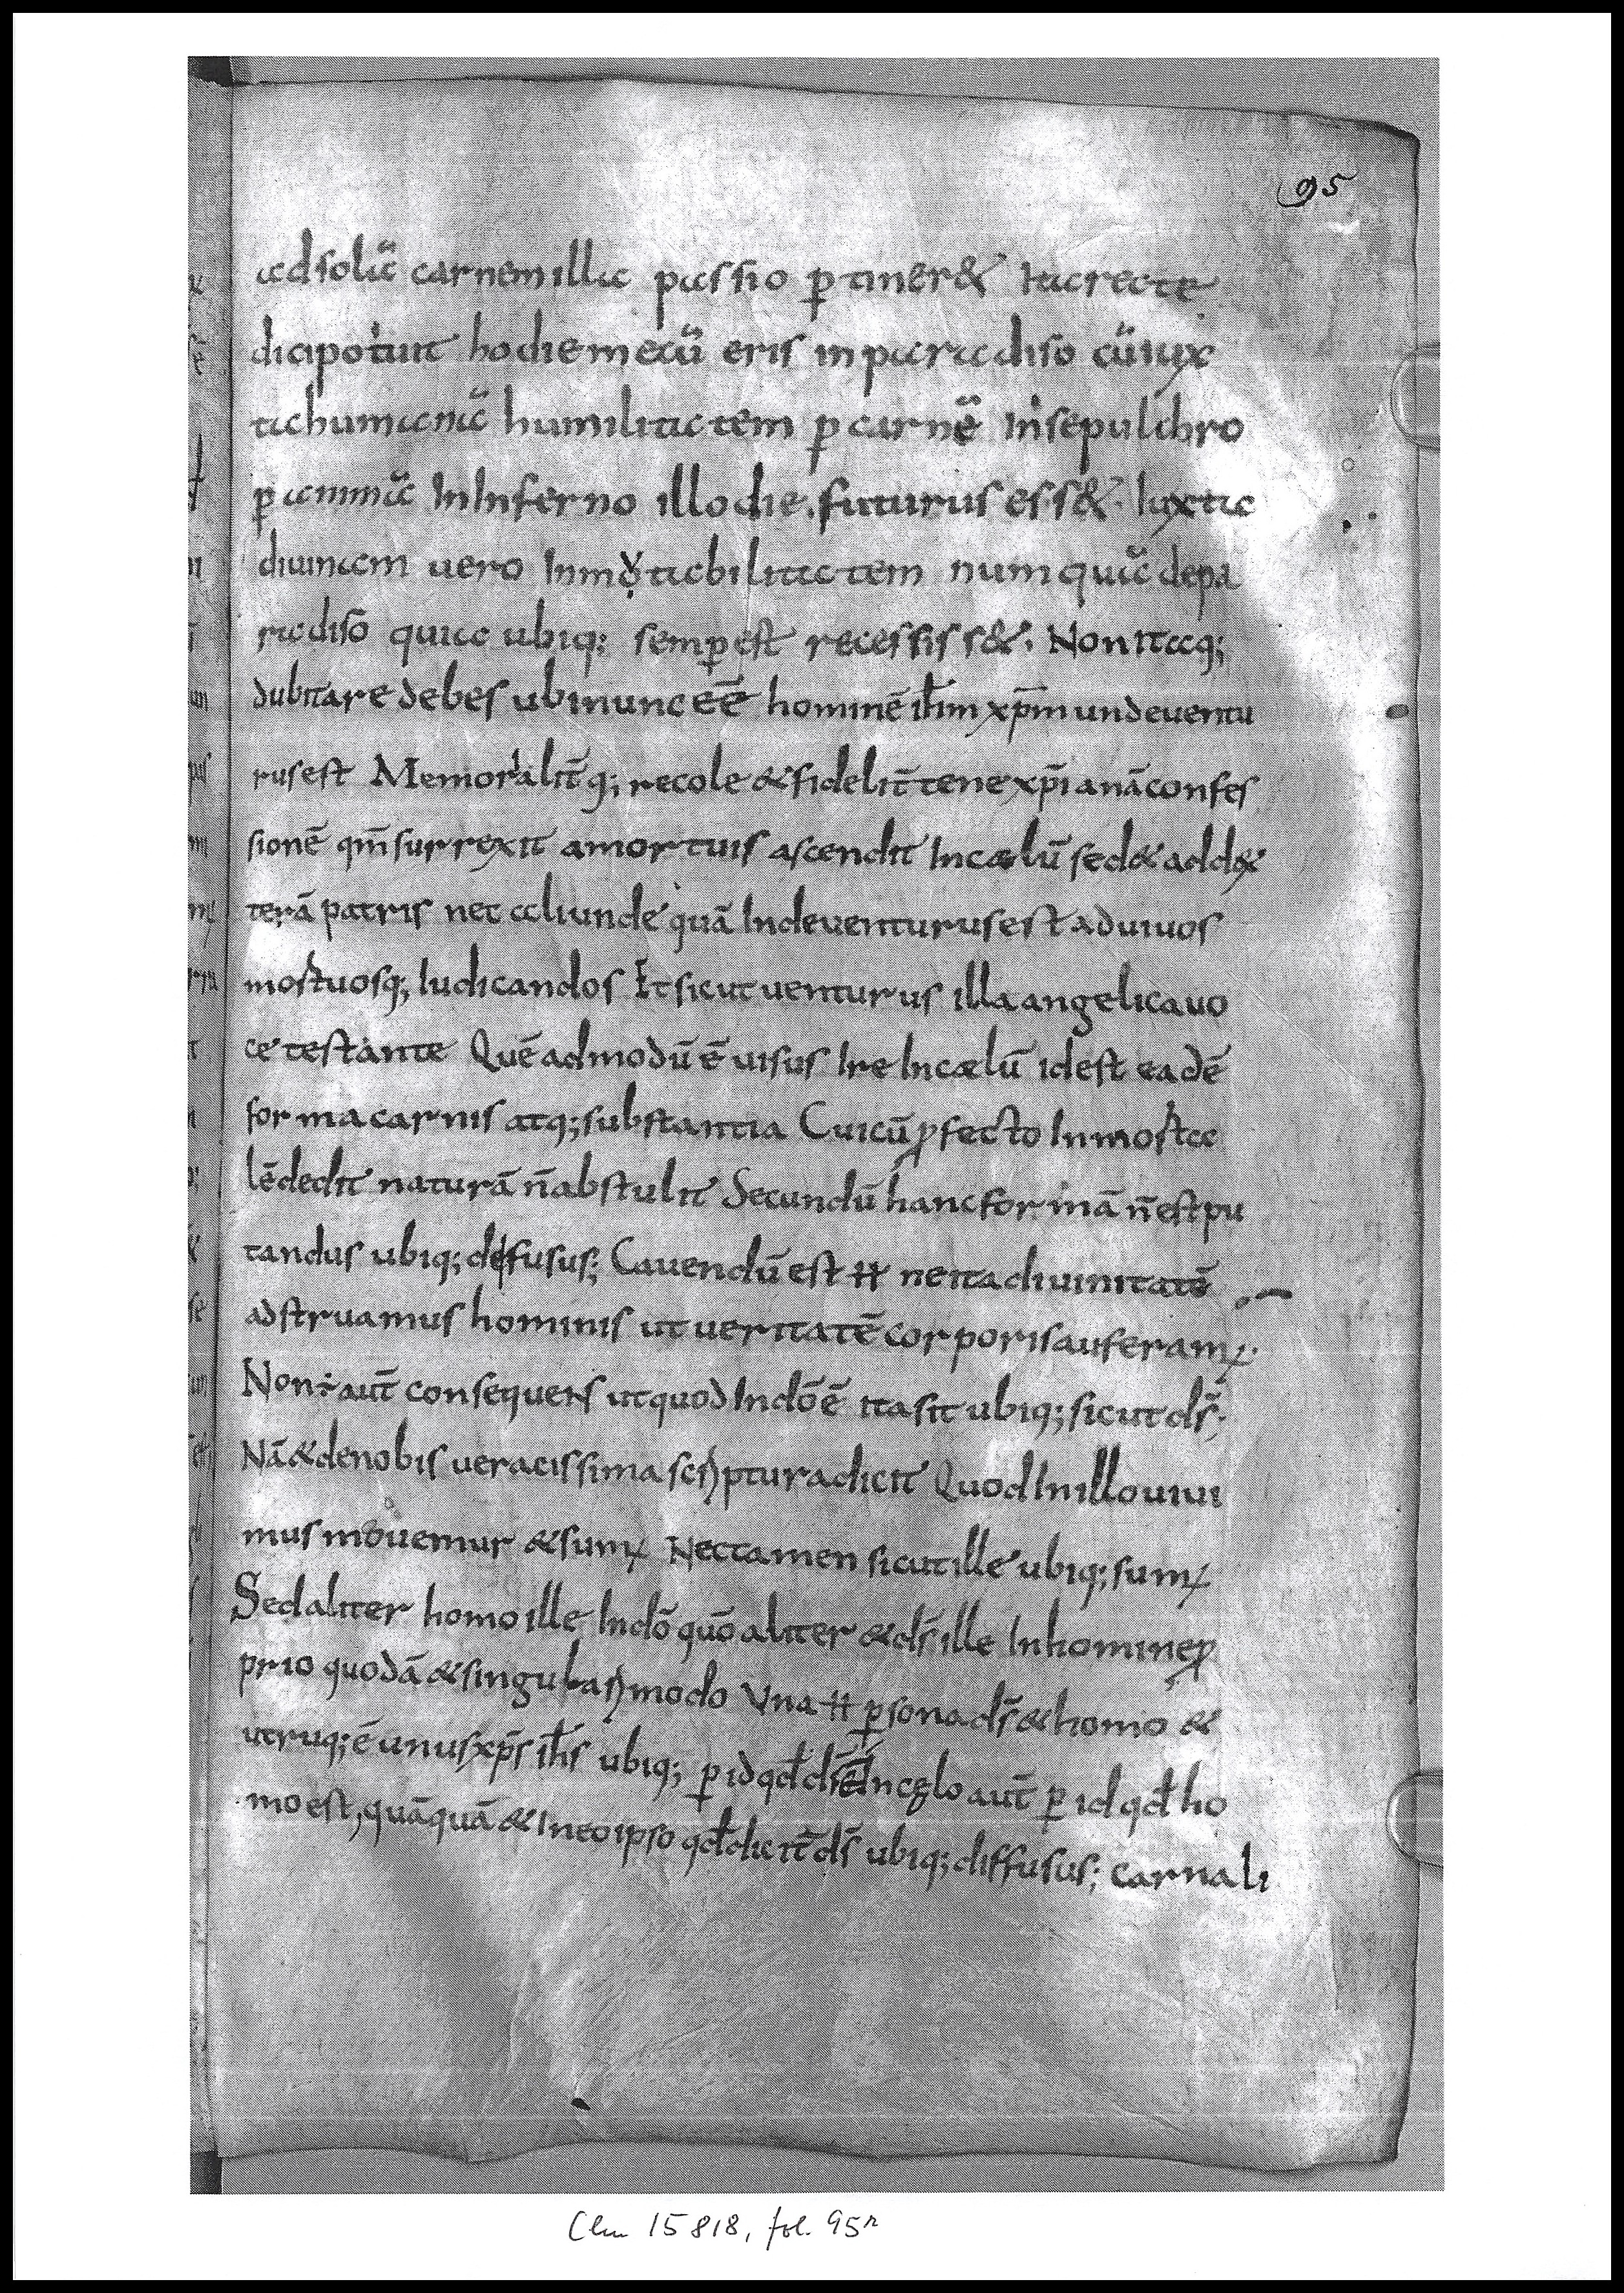 95
adsolā carnem illa passio ꝑ tiner& Ita recte
dici potuit hodie mecū eris in paradiso cū iux
ta humanā humilitatem ꝑ carnē In sepulchro
ꝑ animā In Inferno illo die. futurus ess&. Iuxta
diuinam vero Inmotabilitatem numquā depa
radiso quia ubiq; semꝑ est recessiss&. Non itaq;
dubitare debes ubi nunc eē hominē ih̄m xp̄m unde ventu
rus est Memoralit̄q; recole & fidelit̄ tene xp̄ianā confes
sionē qm̄ surrexit amortuis ascendit In cælū sed & add&
terā patris nec aliunde quā Inde venturus est ad uiuos
mortuosq; Iudicandos Et sicut venturus illa angelica uo
ce testante Quē admodū ē uisus Ire In cælū id est eadē
forma carnis atq; substantia Cui cū ꝓfecto Inmorta
lē dedit naturā n̄ abstulit Secundū hanc formā n̄ est pu
tandus ubiq; defusus; Cavendū est ħ ne ita diuinitatē
adstruamus hominis ut veritatē corporis auferamꝰ.
Non ÷ aut̄ consequens ut quod In dō ē ita sit ubiq; sicut ds̄;
Nā & de nobis veracissima scriptura dicit Quod In illo uiui
mus movemur & sumꝰ Nec tamen sicut ille ubiq; sumꝰ
Sed aliter homo ille In dō quō aliter & ds̄ ille In homine ꝓ
prio quodā & singulari modo Una ħ ꝑsona ds̄ & homo &
utruq; ē unus xp̄s ih̄s ubiq; ꝑ id qd̄ ds̄ ē In cęlo aut̄ ꝑ id qd̄ ho
mo est, quāquā & In eo ipso qd̄ dicit̄ ds̄ ubiq; diffusus; carnali
Clm 15818, fol. 95r